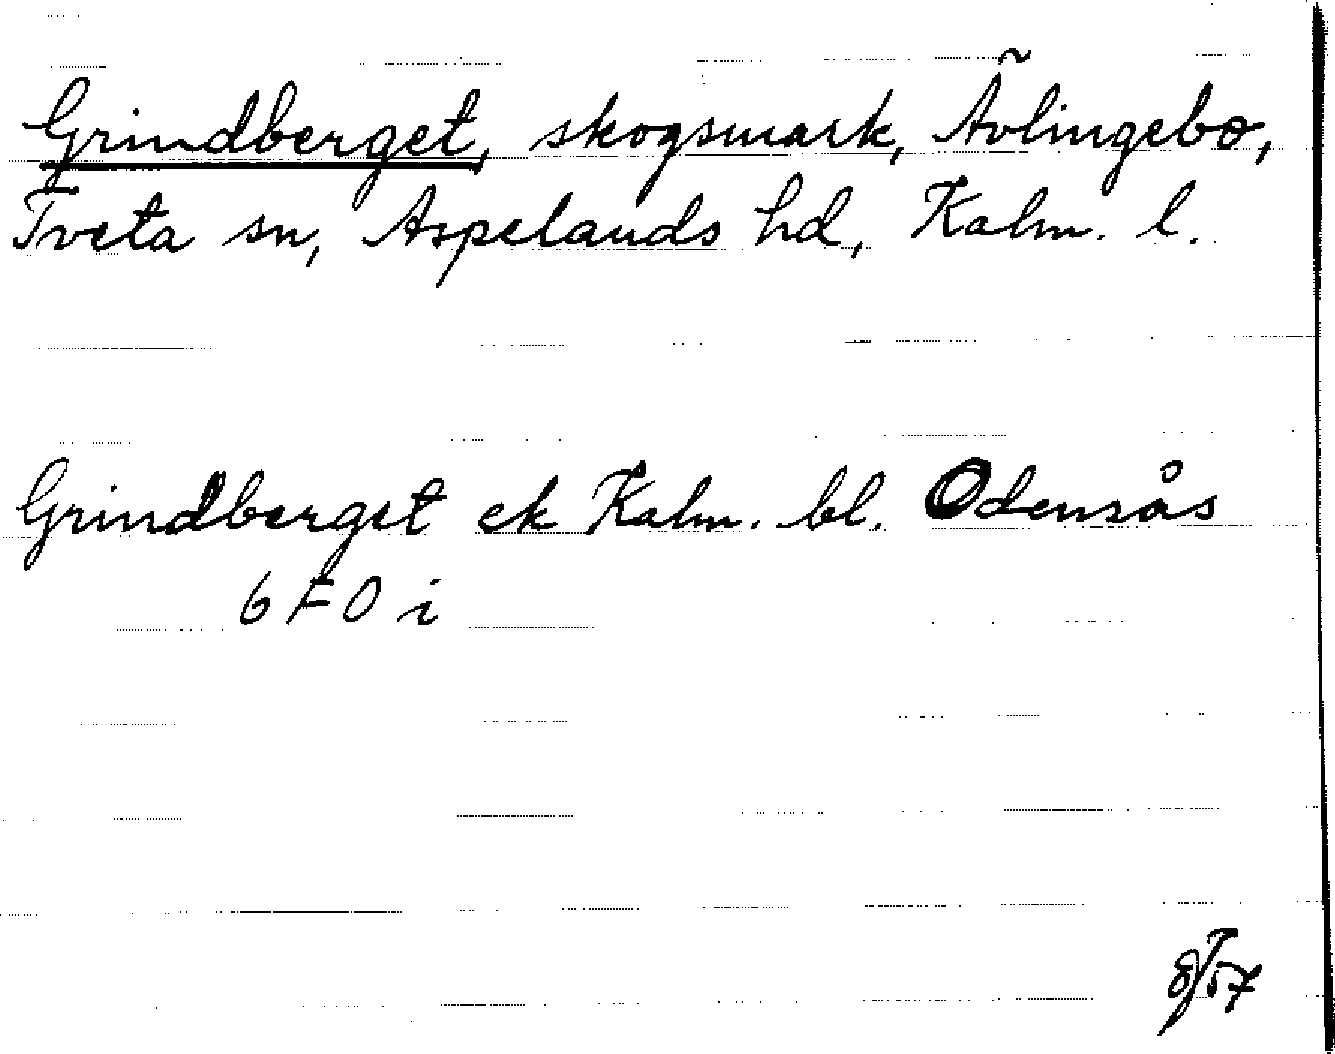 Grindberget, skogsmark, Ãvlingebo,
Tveta sn, Aspelands hd, Kalm. l.
Grindberget ek Kalm. bl. Odensås
6 F 0 i